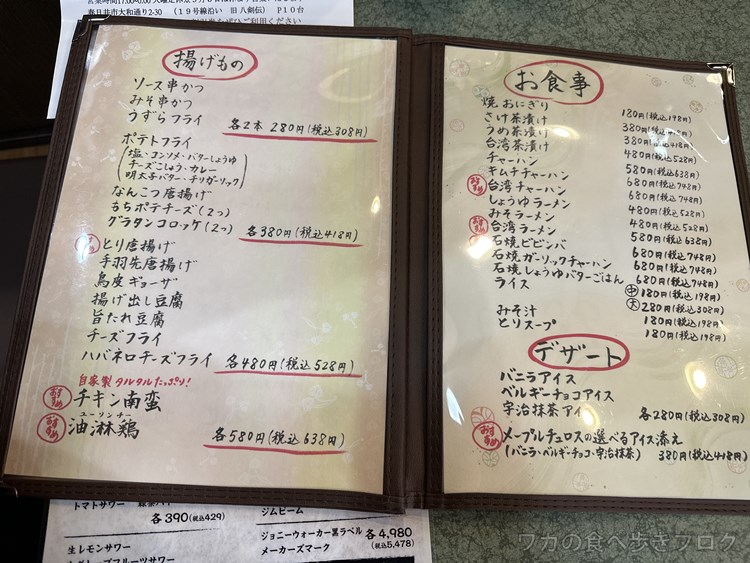 春日井市大和通り2-30 （19号線沿い 旧 八剣伝） P10台
揚げもの
ソース串かつ
みそ串かつ
うずらフライ
各2本 280円(税込308円)
ポテトフライ
(塩・コンソメ・バターしょうゆ
チーズこしょう・カレー
明太子バター・チリガーリック)
なんこつ唐揚げ
もちポテチーズ(2つ)
グラタンコロッケ(2つ)
各380円(税込418円)
おすすめ とり唐揚げ
手羽先唐揚げ
鳥皮ギョーザ
揚げ出し豆腐
旨たれ豆腐
チーズフライ
ハバネロチーズフライ
各480円(税込528円)
自家製タルタルたっぷり!
おすすめ チキン南蛮
ユーリンチー
おすすめ 油淋鶏
各580円(税込638円)
お食事
焼おにぎり 180円(税込198円)
さけ茶漬け 380円(税込418円)
うめ茶漬け 380円(税込418円)
台湾茶漬け 480円(税込528円)
チャーハン 580円(税込638円)
キムチチャーハン 680円(税込748円)
おすすめ 台湾チャーハン 680円(税込748円)
しょうゆラーメン 480円(税込528円)
みそラーメン 480円(税込528円)
おすすめ 台湾ラーメン 580円(税込638円)
石焼ビビンバ 680円(税込748円)
石焼ガーリックチャーハン 680円(税込748円)
石焼しょうゆバターごはん 680円(税込748円)
ライス 中 180円(税込198円)
大 280円(税込308円)
みそ汁 180円(税込198円)
とりスープ 180円(税込198円)
デザート
バニラアイス
ベルギーチョコアイス
宇治抹茶アイ
各280円(税込308円)
おすすめ メープルチュロスの選べるアイス添え
(バニラ・ベルギーチョコ・宇治抹茶) 380円(税込418円)
トマトサワー
各390(税込429)
生レモンサワー
ジムビーム
ジョニーウォーカー黒ラベル 各4,980
メーカーズマーク (税込5,478)
ワカの食べ歩きブログ